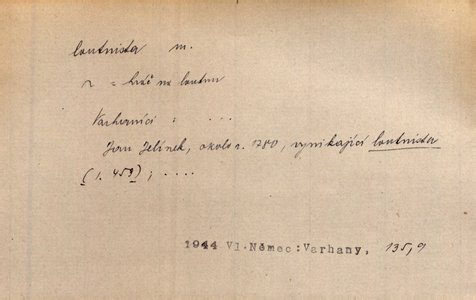 loutnista m.
n = hráč na loutnu
Varhaníci : . . .
Jan Jelínek, okolo r. 1780, vynikající loutnista
(I. 459) ; . . . .
1944 Vl.Němec:Varhany, 135,9